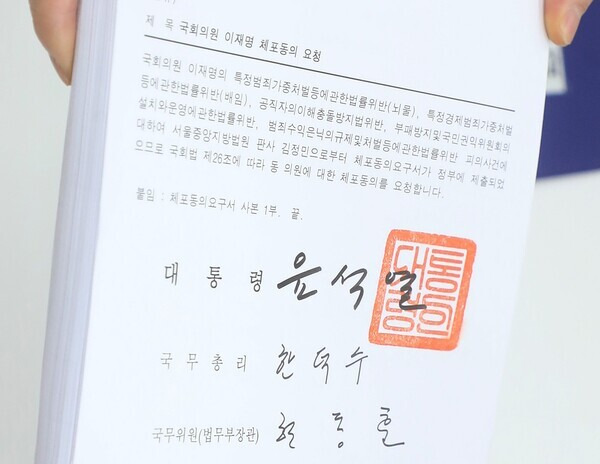 제 목 국회의원 이재명 체포동의 요청
국회의원 이재명의 특정범죄가중처벌등에관한법률위반(뇌물), 특정경제범죄가중처벌
등에관한법률위반(배임), 공직자의이해충돌방지법위반, 부패방지및국민권익위원회의
설치와운영에관한법률위반, 범죄수익은닉의규제및처벌등에관한법률위반 피의사건에
대하여 서울중앙지방법원 판사 김정민으로부터 체포동의요구서가 정부에 제출되었
으므로 국회법 제26조에 따라 동 의원에 대한 체포동의를 요청합니다.
붙임 : 체포동의요구서 사본 1부. 끝.
대 통 령 윤석열
대통령의
국 무 총 리 한덕수
국무위원(법무부장관) 한동훈